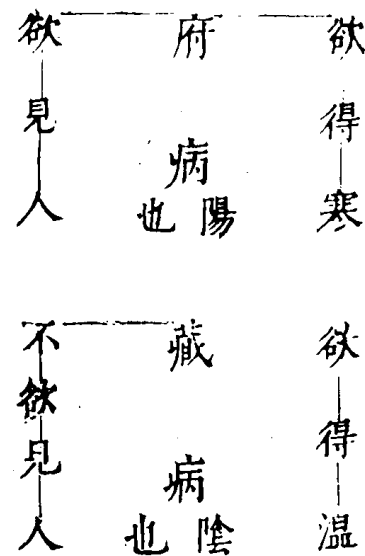 欲得寒
府病
陽也
欲見人
欲得温
藏病
陰也
不欲見人